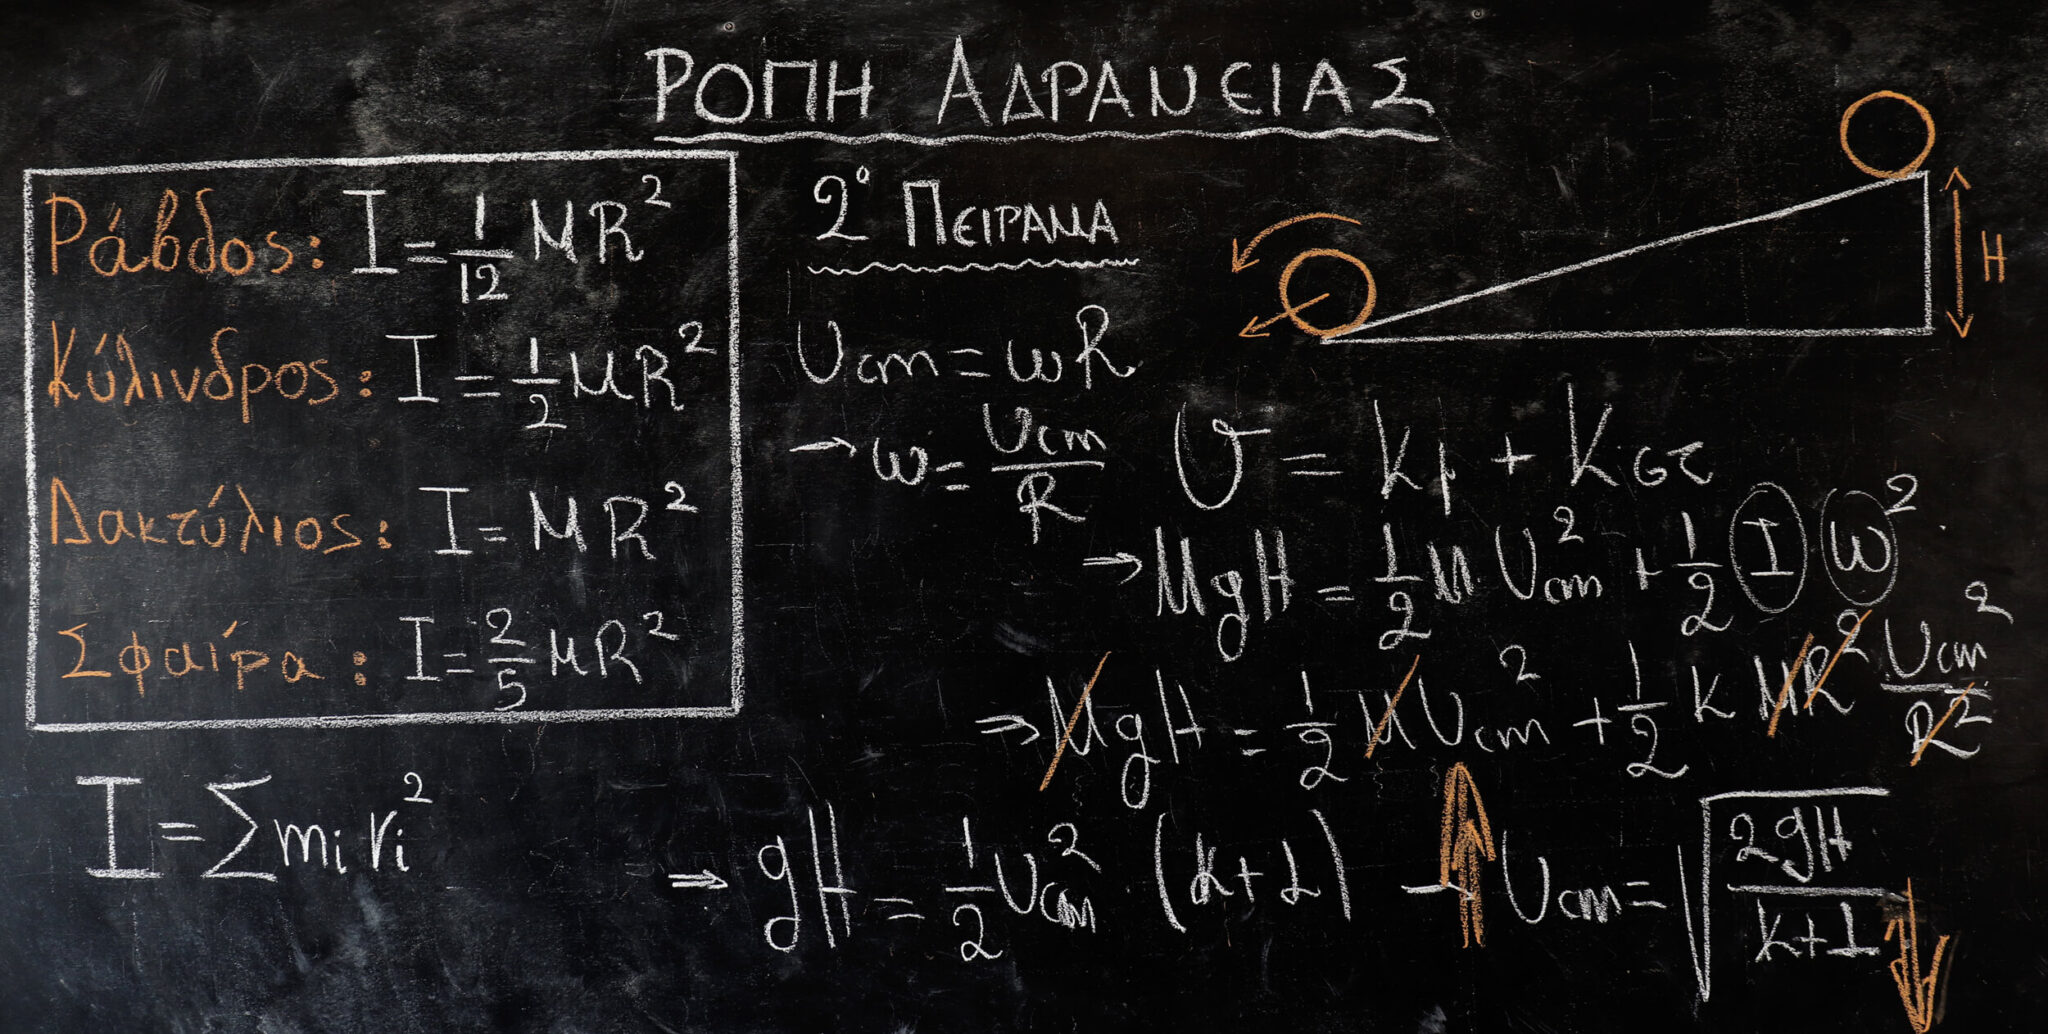 ΡΟΠΗ ΑΔΡΑΝΕΙΑΣ
Ράβδος: I = 1/12 MR²
Κύλινδρος: I = 1/2 MR²
Δακτύλιος: I = MR²
Σφαίρα: I = 2/5 MR²
I = Σ mᵢ rᵢ²
2° ΠΕΙΡΑΜΑ
H
υcm = ωR
→ ω = υcm/R
U = Kρ + Kστ
⇒ MgH = 1/2 M υcm² + 1/2 I ω²
⇒ MgH = 1/2 M υcm² + 1/2 k MR² υcm²/R²
⇒ gH = 1/2 υcm² (k+1) → υcm = √(2gH/(k+1))